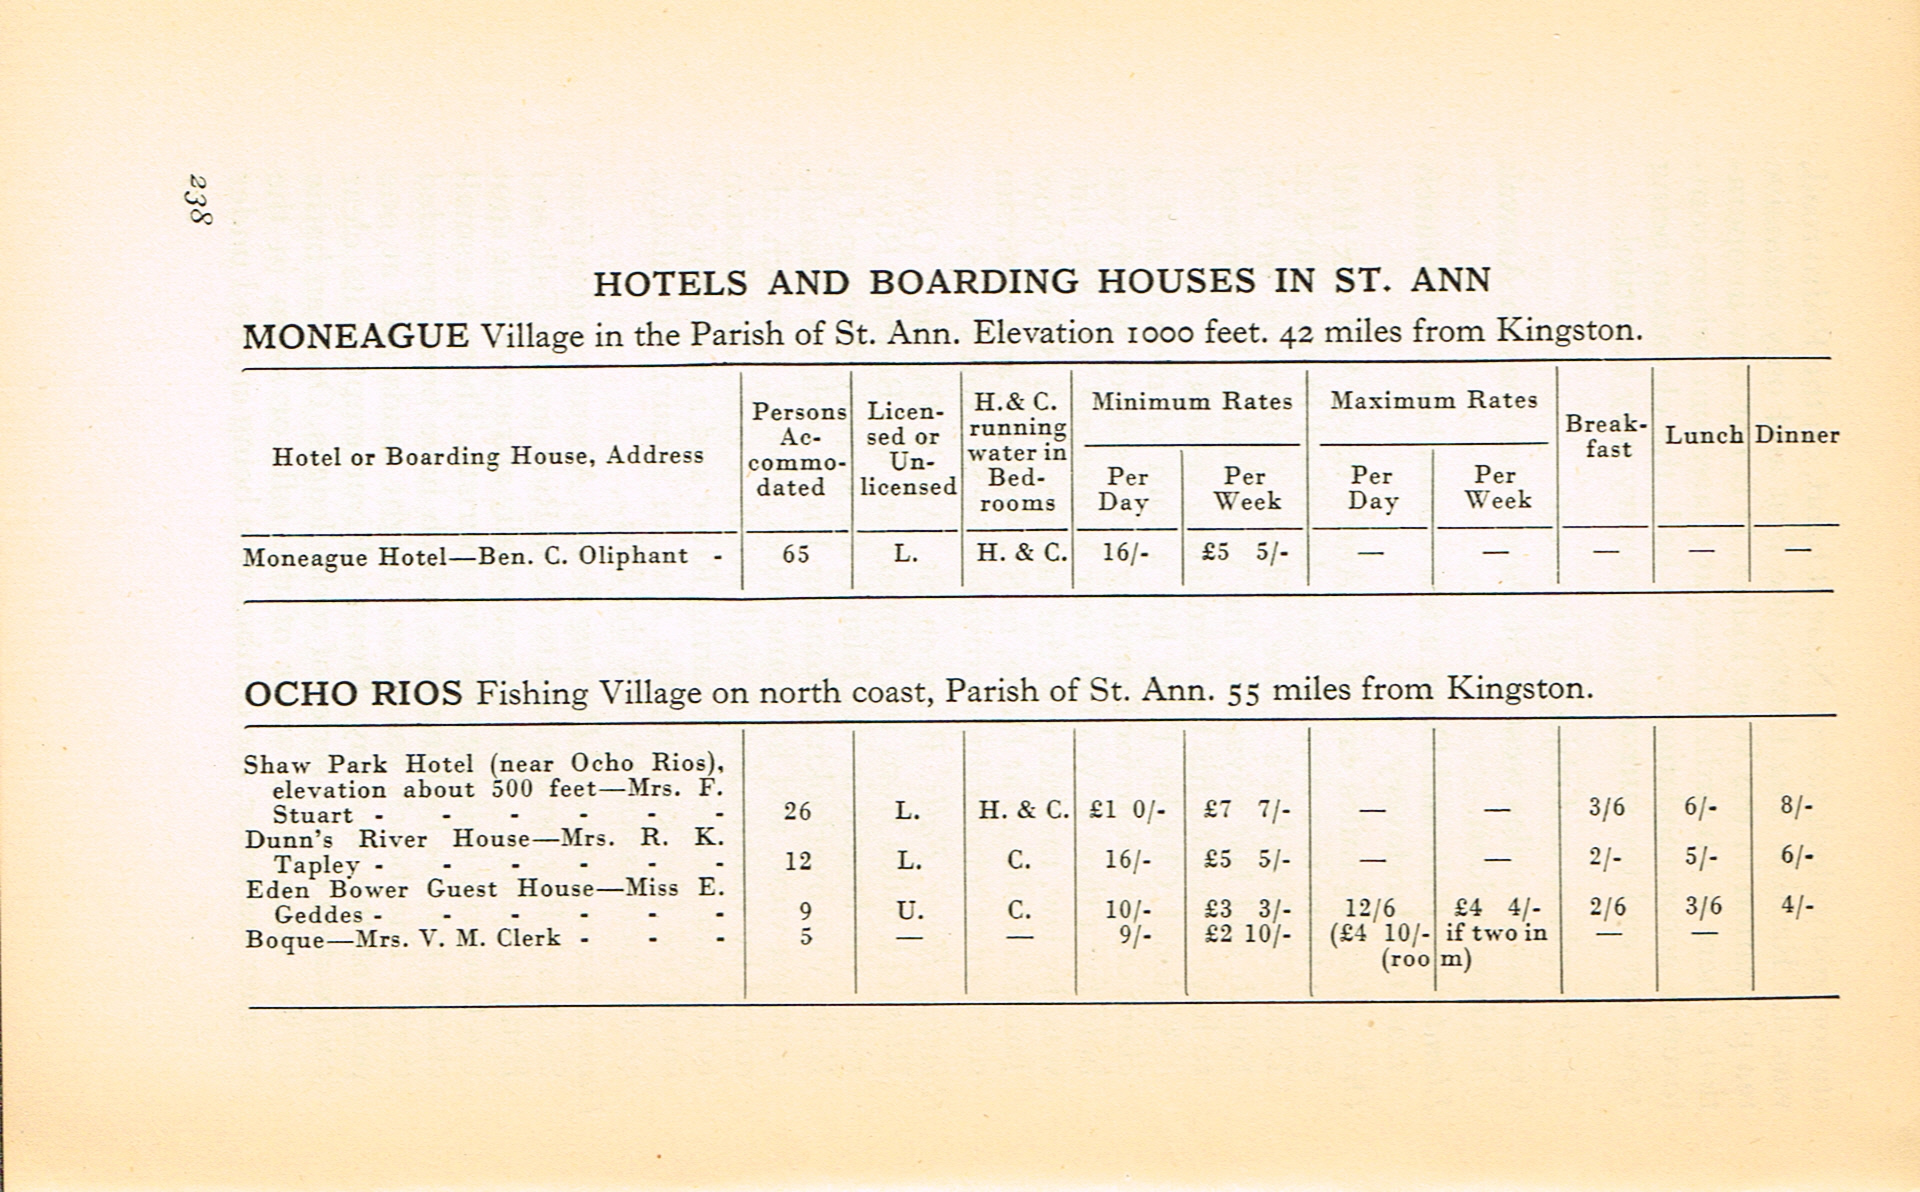 238
HOTELS AND BOARDING HOUSES IN ST. ANN
MONEAGUE Village in the Parish of St. Ann. Elevation 1000 feet. 42 miles from Kingston.
Hotel or Boarding House, Address | Persons Ac-commo-dated | Licen-sed or Un-licensed | H. & C. running water in Bed-rooms | Minimum Rates Per Day | Per Week | Maximum Rates Per Day | Per Week | Break-fast | Lunch | Dinner
Moneague Hotel—Ben. C. Oliphant - 65 L. H. & C. 16/- £5 5/- — — — — —
OCHO RIOS Fishing Village on north coast, Parish of St. Ann. 55 miles from Kingston.
Shaw Park Hotel (near Ocho Rios),
elevation about 500 feet—Mrs. F.
Stuart - - - - - - 26 L. H. & C. £1 0/- £7 7/- — — 3/6 6/- 8/-
Dunn's River House—Mrs. R. K.
Tapley - - - - - - 12 L. C. 16/- £5 5/- — — 2/- 5/- 6/-
Eden Bower Guest House—Miss E.
Geddes - - - - - - 9 U. C. 10/- £3 3/- 12/6 £4 4/- 2/6 3/6 4/-
Boque—Mrs. V. M. Clerk - - - 5 — — 9/- £2 10/- (£4 10/- if two in — —
(room)